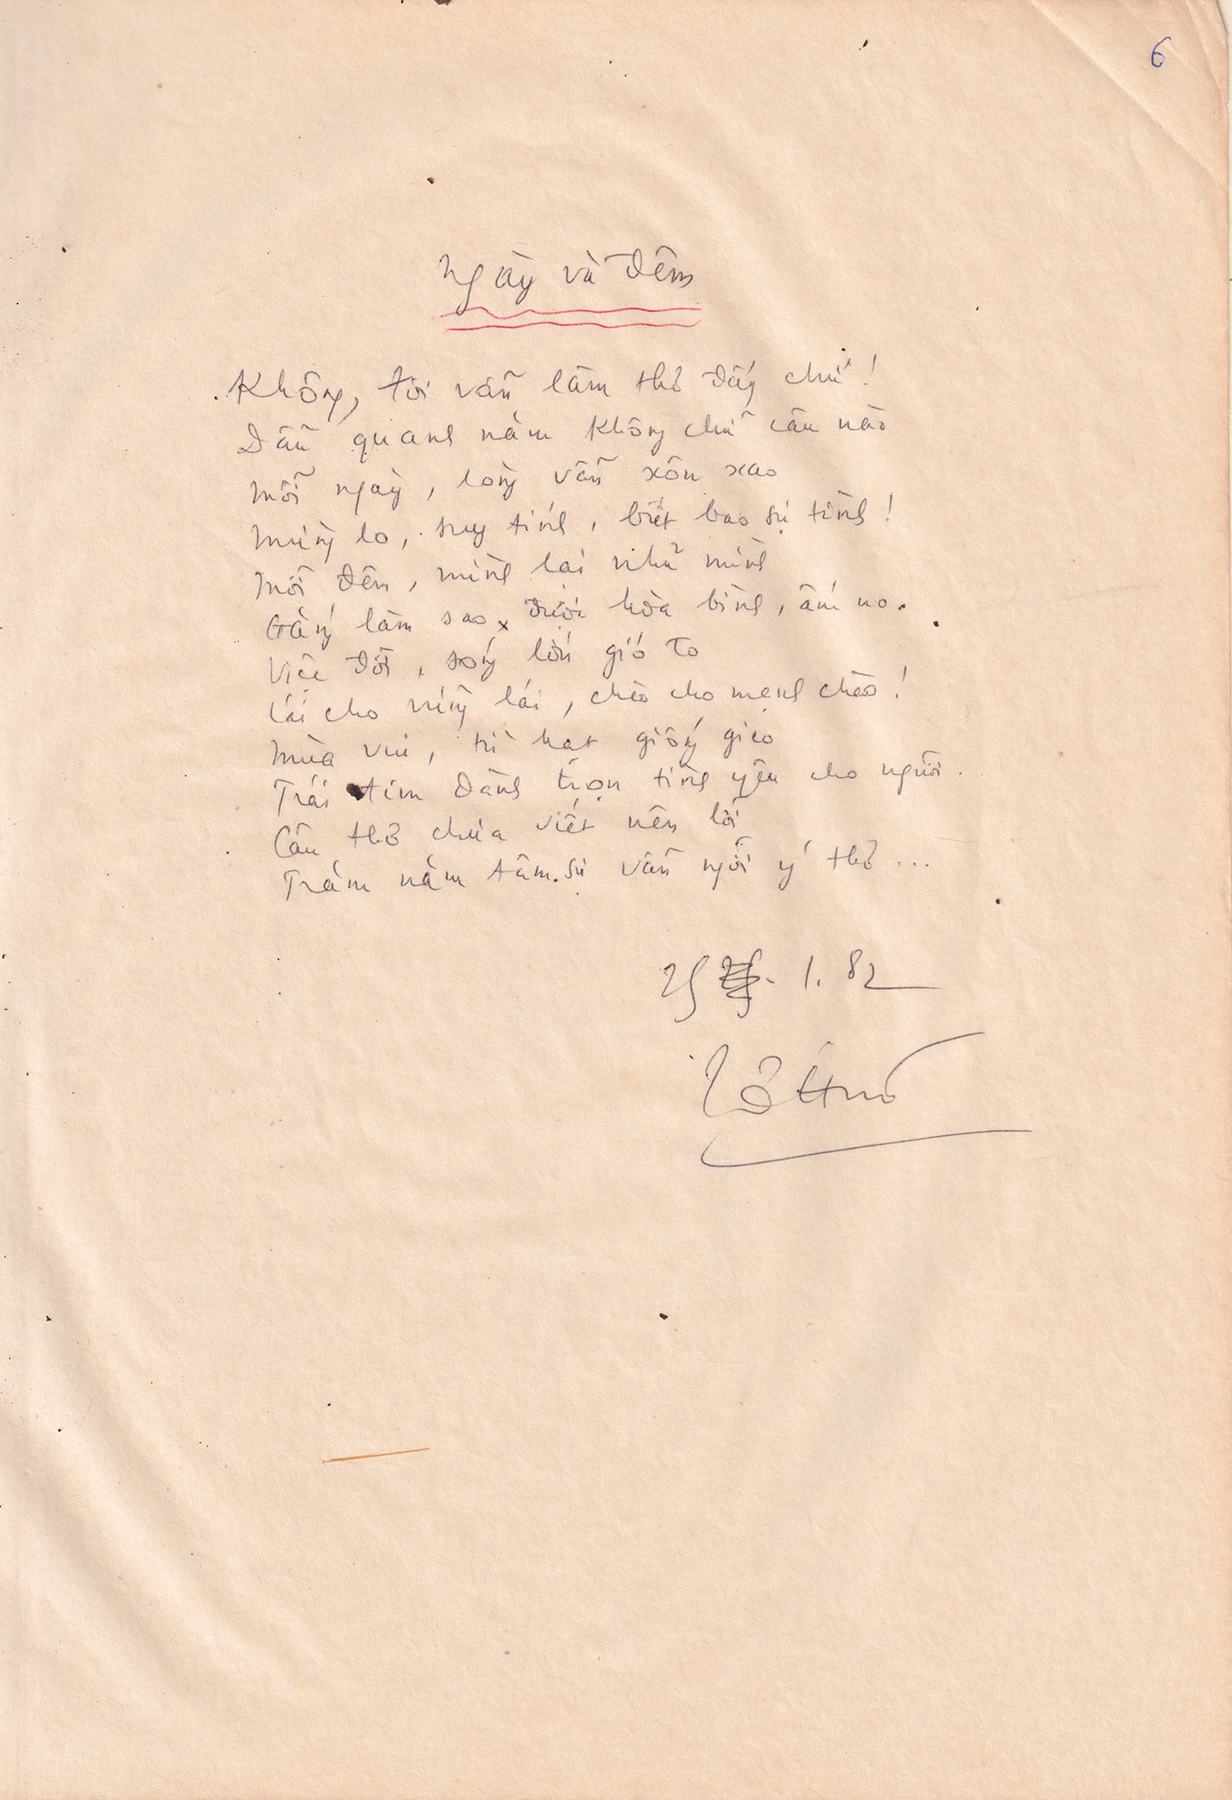 6
Ngày và đêm
Không, tôi vẫn làm thơ đấy chứ!
Dẫu quanh năm không chữ câu nào
Mỗi ngày, lòng vẫn xôn xao
Mừng lo, suy tính, biết bao sự tình!
Mỗi đêm, mình lại nhủ mình
Gắng làm sao, được hòa bình, ấm no.
Việc đời, sóng lớn gió to
Lái cho vững lái, chèo cho mạnh chèo!
Mùa vui, từ hạt giống gieo
Trái tim dành trọn tình yêu cho người.
Câu thơ chưa viết nên lời
Trăm năm tâm sự vẫn ngời ý thơ...
25. 1. 82
Tố Hữu